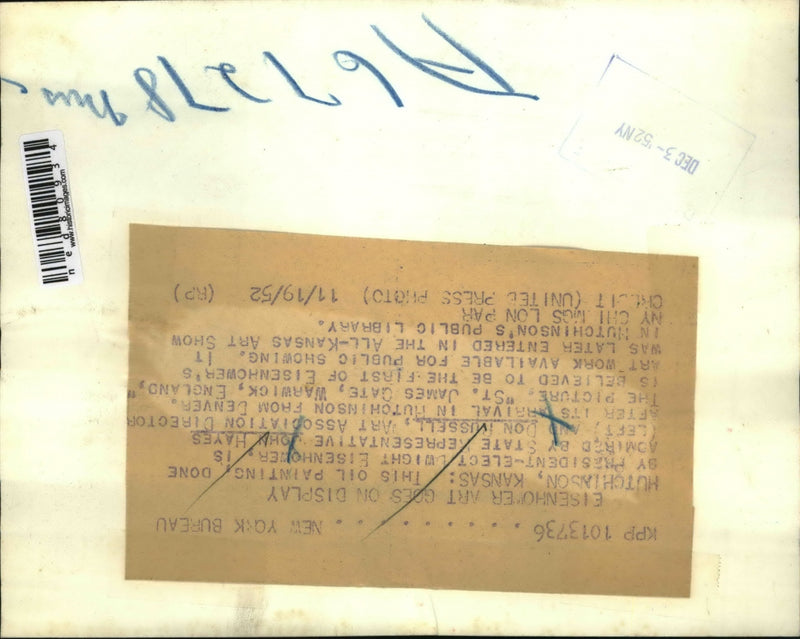 KPP 1013736 . . . . . . . . . . . NEW YORK BUREAU
EISENHOWER ART GOES ON DISPLAY
HUTCHINSON, KANSAS: THIS OIL PAINTING, DONE
BY PRESIDENT-ELECT DWIGHT EISENHOWER, IS
ADMIRED BY STATE REPRESENTATIVE JOHN HAYES
(LEFT) AND DON RUSSELL, ART ASSOCIATION DIRECTOR
AFTER ITS ARRIVAL IN HUTCHINSON FROM DENVER.
THE PICTURE, "ST. JAMES GATE, WARWICK, ENGLAND,"
IS BELIEVED TO BE THE FIRST OF EISENHOWER'S
ART WORK AVAILABLE FOR PUBLIC SHOWING. IT
WAS LATER ENTERED IN THE ALL-KANSAS ART SHOW
IN HUTCHINSON'S PUBLIC LIBRARY.
NY CHI MGS LON PAR
CREDIT (UNITED PRESS PHOTO) 11/19/52 (RP)
DEC 3 - '52 NY
ned80934
www.historicimages.com